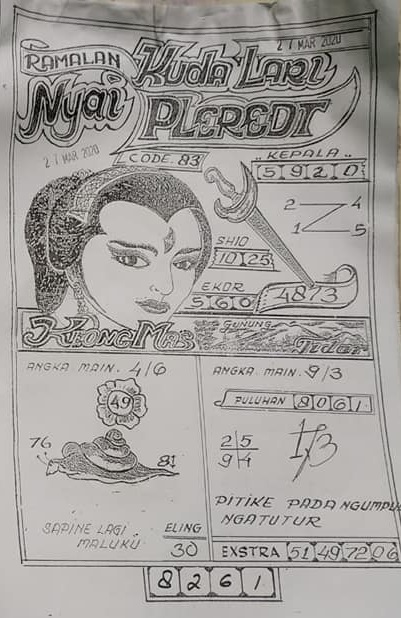 21 MAR 2020
RAMALAN
KUDA LARI
NYAI PLEREDT
21 MAR 2020
CODE. 83
„ KEPALA „
5 9 2 0
2 4
1 5
SHIO
10 25
EKOR
5 6 0
4873
KEONG MAS
GUNUNG
Tidar
ANGKA MAIN. 4/6
49
76
81
SAPINE LAGI
MALUKU
ELING
30
ANGKA MAIN. 9/3
PULUHAN 8 0 6 1
2 5
9 4
1/3
PITIKE PADA NGUMPUL
NGATUTUR
EXSTRA 51 49 72 06
8 2 6 1